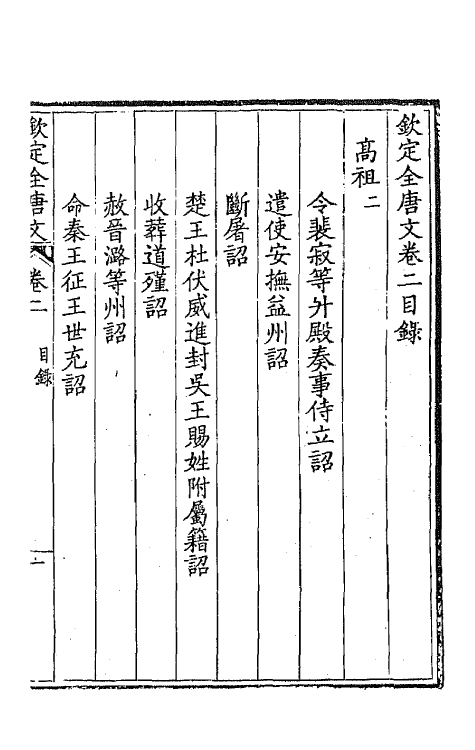 欽定全唐文卷二目錄
高祖二
令裴寂等升殿奏事侍立詔
遣使安撫益州詔
斷屠詔
楚王杜伏威進封吳王賜姓附屬籍詔
收葬道殣詔
赦晉潞等州詔
命秦王征王世充詔
欽定全唐文 卷二 目錄